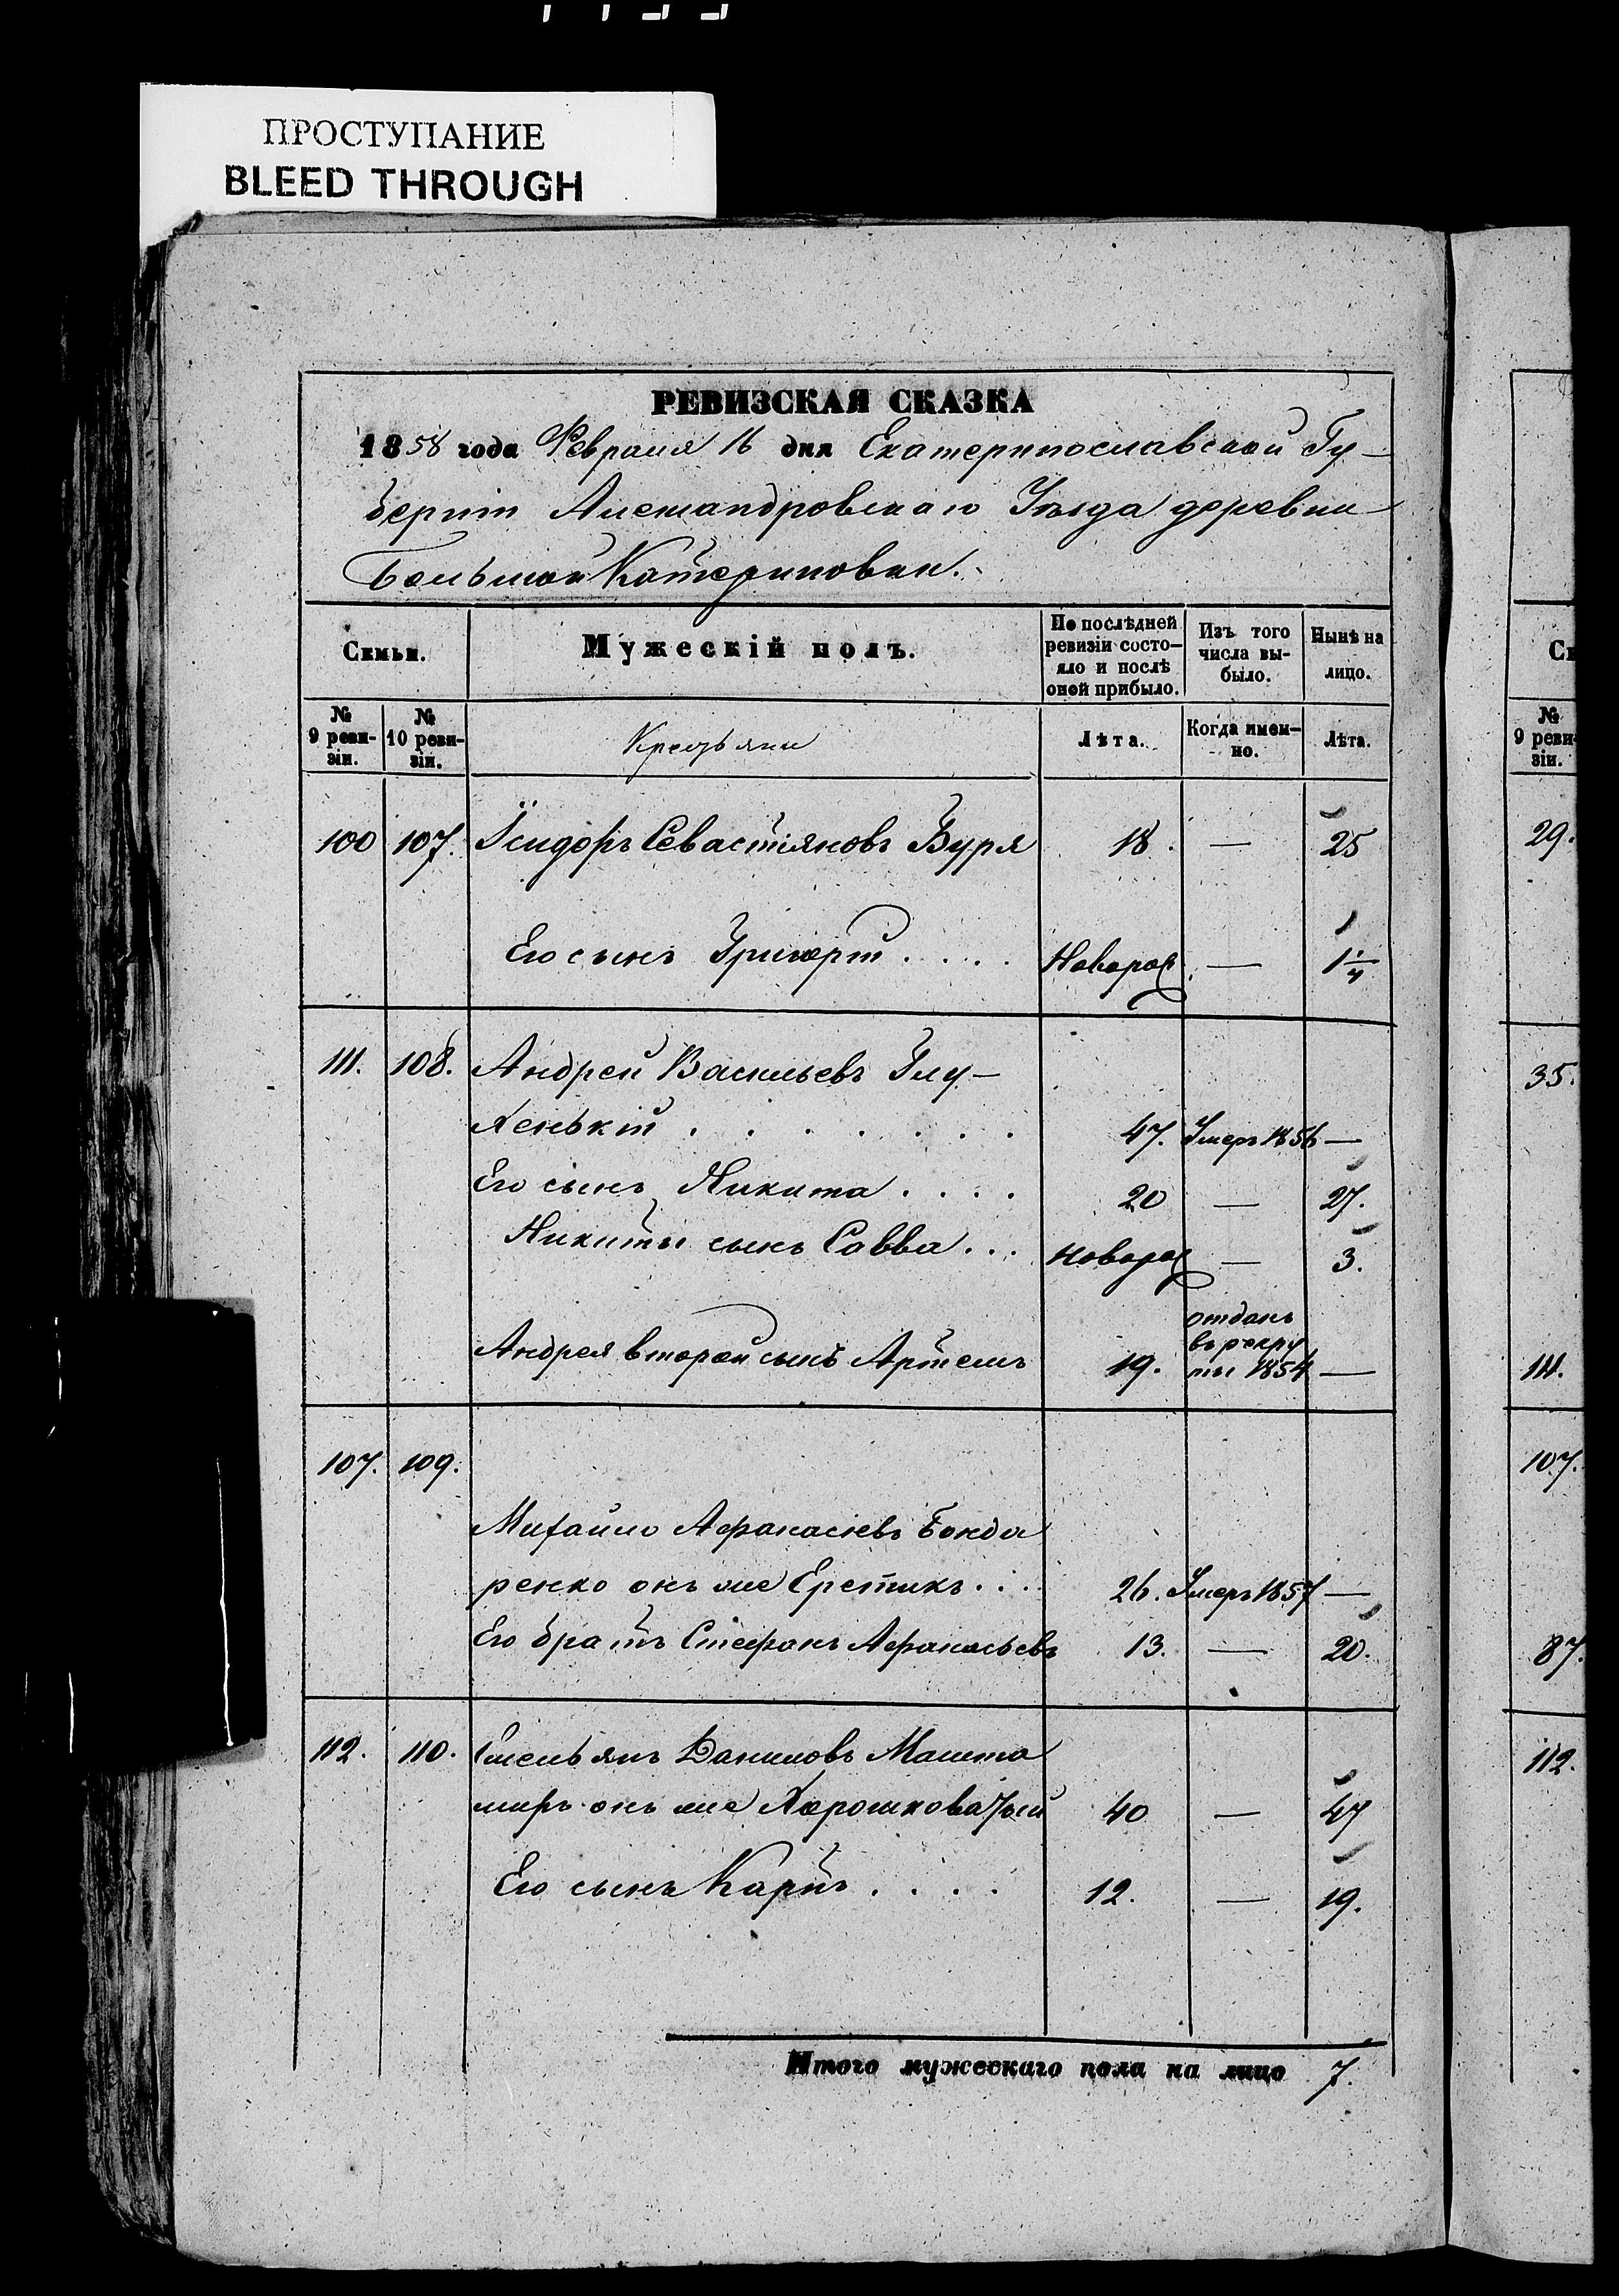 ПРОСТУПАНИЕ
BLEED THROUGH
РЕВИЗСКАЯ СКАЗКА
1858 года Февраля 16 дня Екатеринославской Гу-
берніи Александровскаго Уѣзда деревни
Большой Катериновки.
Семьи. Мужескій полъ. По послѣдней ревизіи состо-яло и послѣ оной прибыло. Изъ того числа вы-было. Нынѣ на лицо.
№ 9 реви-зіи. № 10 реви-зіи. Крестьяни Лѣта. Когда имен-но. Лѣта.
100 107. Ісидоръ Севастіяновъ Буря 18. — 25
Его сынъ Григорій .... Новорож. — 1 1/4
111. 108. Андрей Васильевъ Глу-
хенькій ....... 47. Умеръ 1856 —
Его сынъ Никита .... 20 — 27.
Никиты сынъ Савва ... Новорож — 3.
Андрея второй сынъ Артемъ 19. отданъ въ рекру ты 1854 —
107. 109.
Михайло Афанасіевъ Бонда
ренко онъ же Еретикъ ... 26. Умеръ 1857 —
Его братъ Стефанъ Афанасьевъ 13. — 20.
112. 110. Емельянъ Даниловъ
онъ же 40 — 47
Его сынъ Карпъ .... 12. — 19.
Итого мужескаго пола на лицо 7.
№ 9 реви зіи.
29.
35.
111.
107.
87.
112.